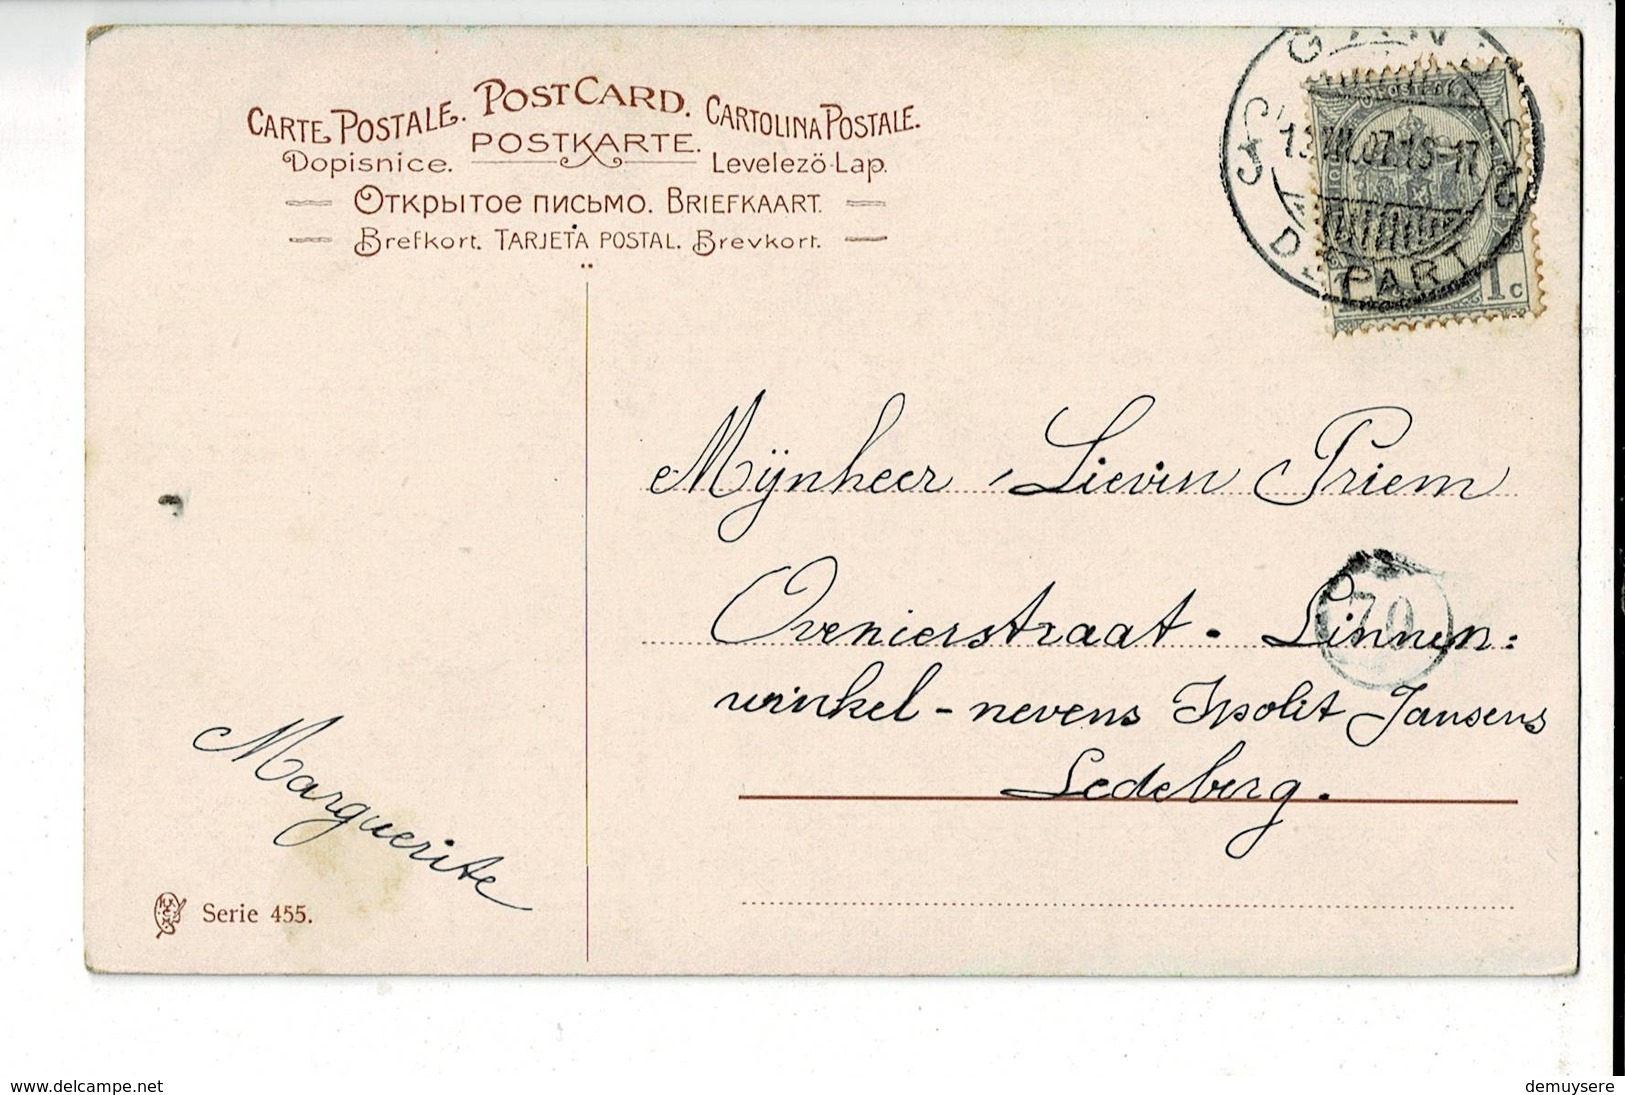 CARTE POSTALE. POST CARD. CARTOLINA POSTALE.
POSTKARTE.
Dopisnice. Levelezö-Lap.
Открытое письмо. BRIEFKAART.
Brefkort. TARJETA POSTAL. Brevkort.
DEPART
1 c
Mÿnheer Lievin Priem
70
Ovenierstraat. Linnen:
winkel - nevens Ipolit Jansens
Ledeberg.
Marguerite
Serie 455.
www.delcampe.net
demuysere